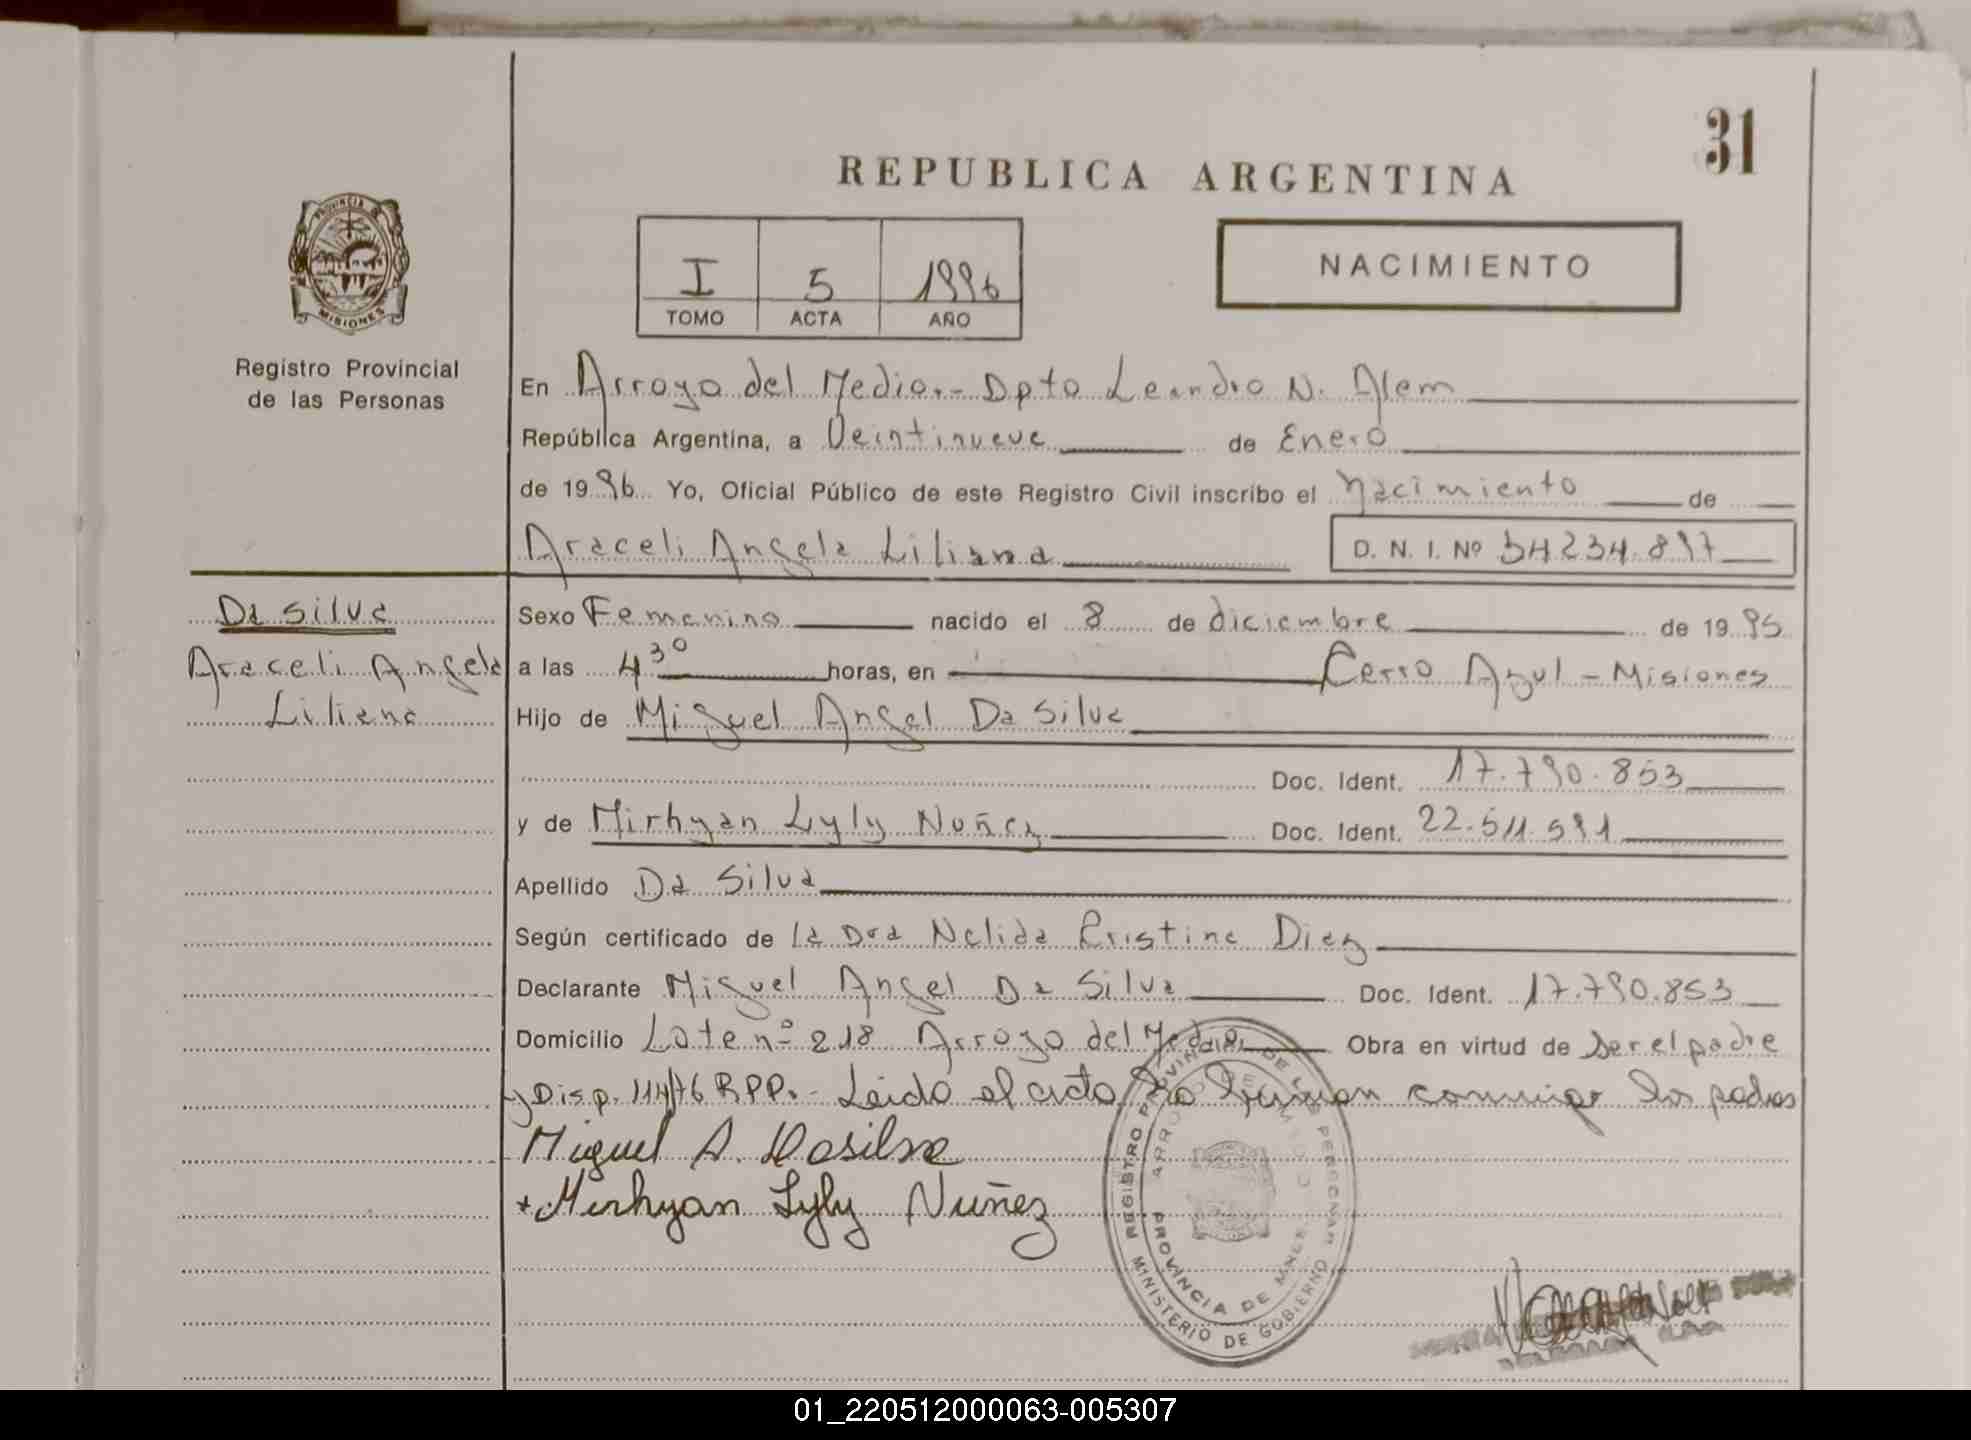 31
REPUBLICA ARGENTINA
PROVINCIA DE
MISIONES
Registro Provincial
de las Personas
I 5 1996
TOMO ACTA AÑO
NACIMIENTO
En Arroyo del Medio.- Dpto Leandro N. Alem
República Argentina, a Veintinueve de Enero
de 1996 Yo, Oficial Público de este Registro Civil inscribo el Nacimiento de
Araceli Angela Liliana D. N. I. Nº 34.234.897
Da Silva
Araceli Angela
Liliana
Sexo Femenino nacido el 8 de diciembre de 1995
a las 4 30 horas, en Cerro Azul - Misiones
Hijo de Miguel Angel Da Silva
Doc. Ident. 17.790.853
y de Mirhyan Lyly Nuñez Doc. Ident. 22.511.591
Apellido Da Silva
Según certificado de la Dra Nelida Cristina Diez
Declarante Miguel Angel Da Silva Doc. Ident. 17.790.853
Domicilio Lote nº 218 Arroyo del Medio Obra en virtud de ser el padre
y Disp. 114/76 RPP.- Leido el acta la firman conmigo los padres
Miguel A. Dasilva
+ Mirhyan Lyly Nuñez
REGISTRO PROVINCIAL DE LAS PERSONAS
ARROYO DEL MEDIO
PROVINCIA DE MNES.
MINISTERIO DE GOBIERNO
01_220512000063-005307